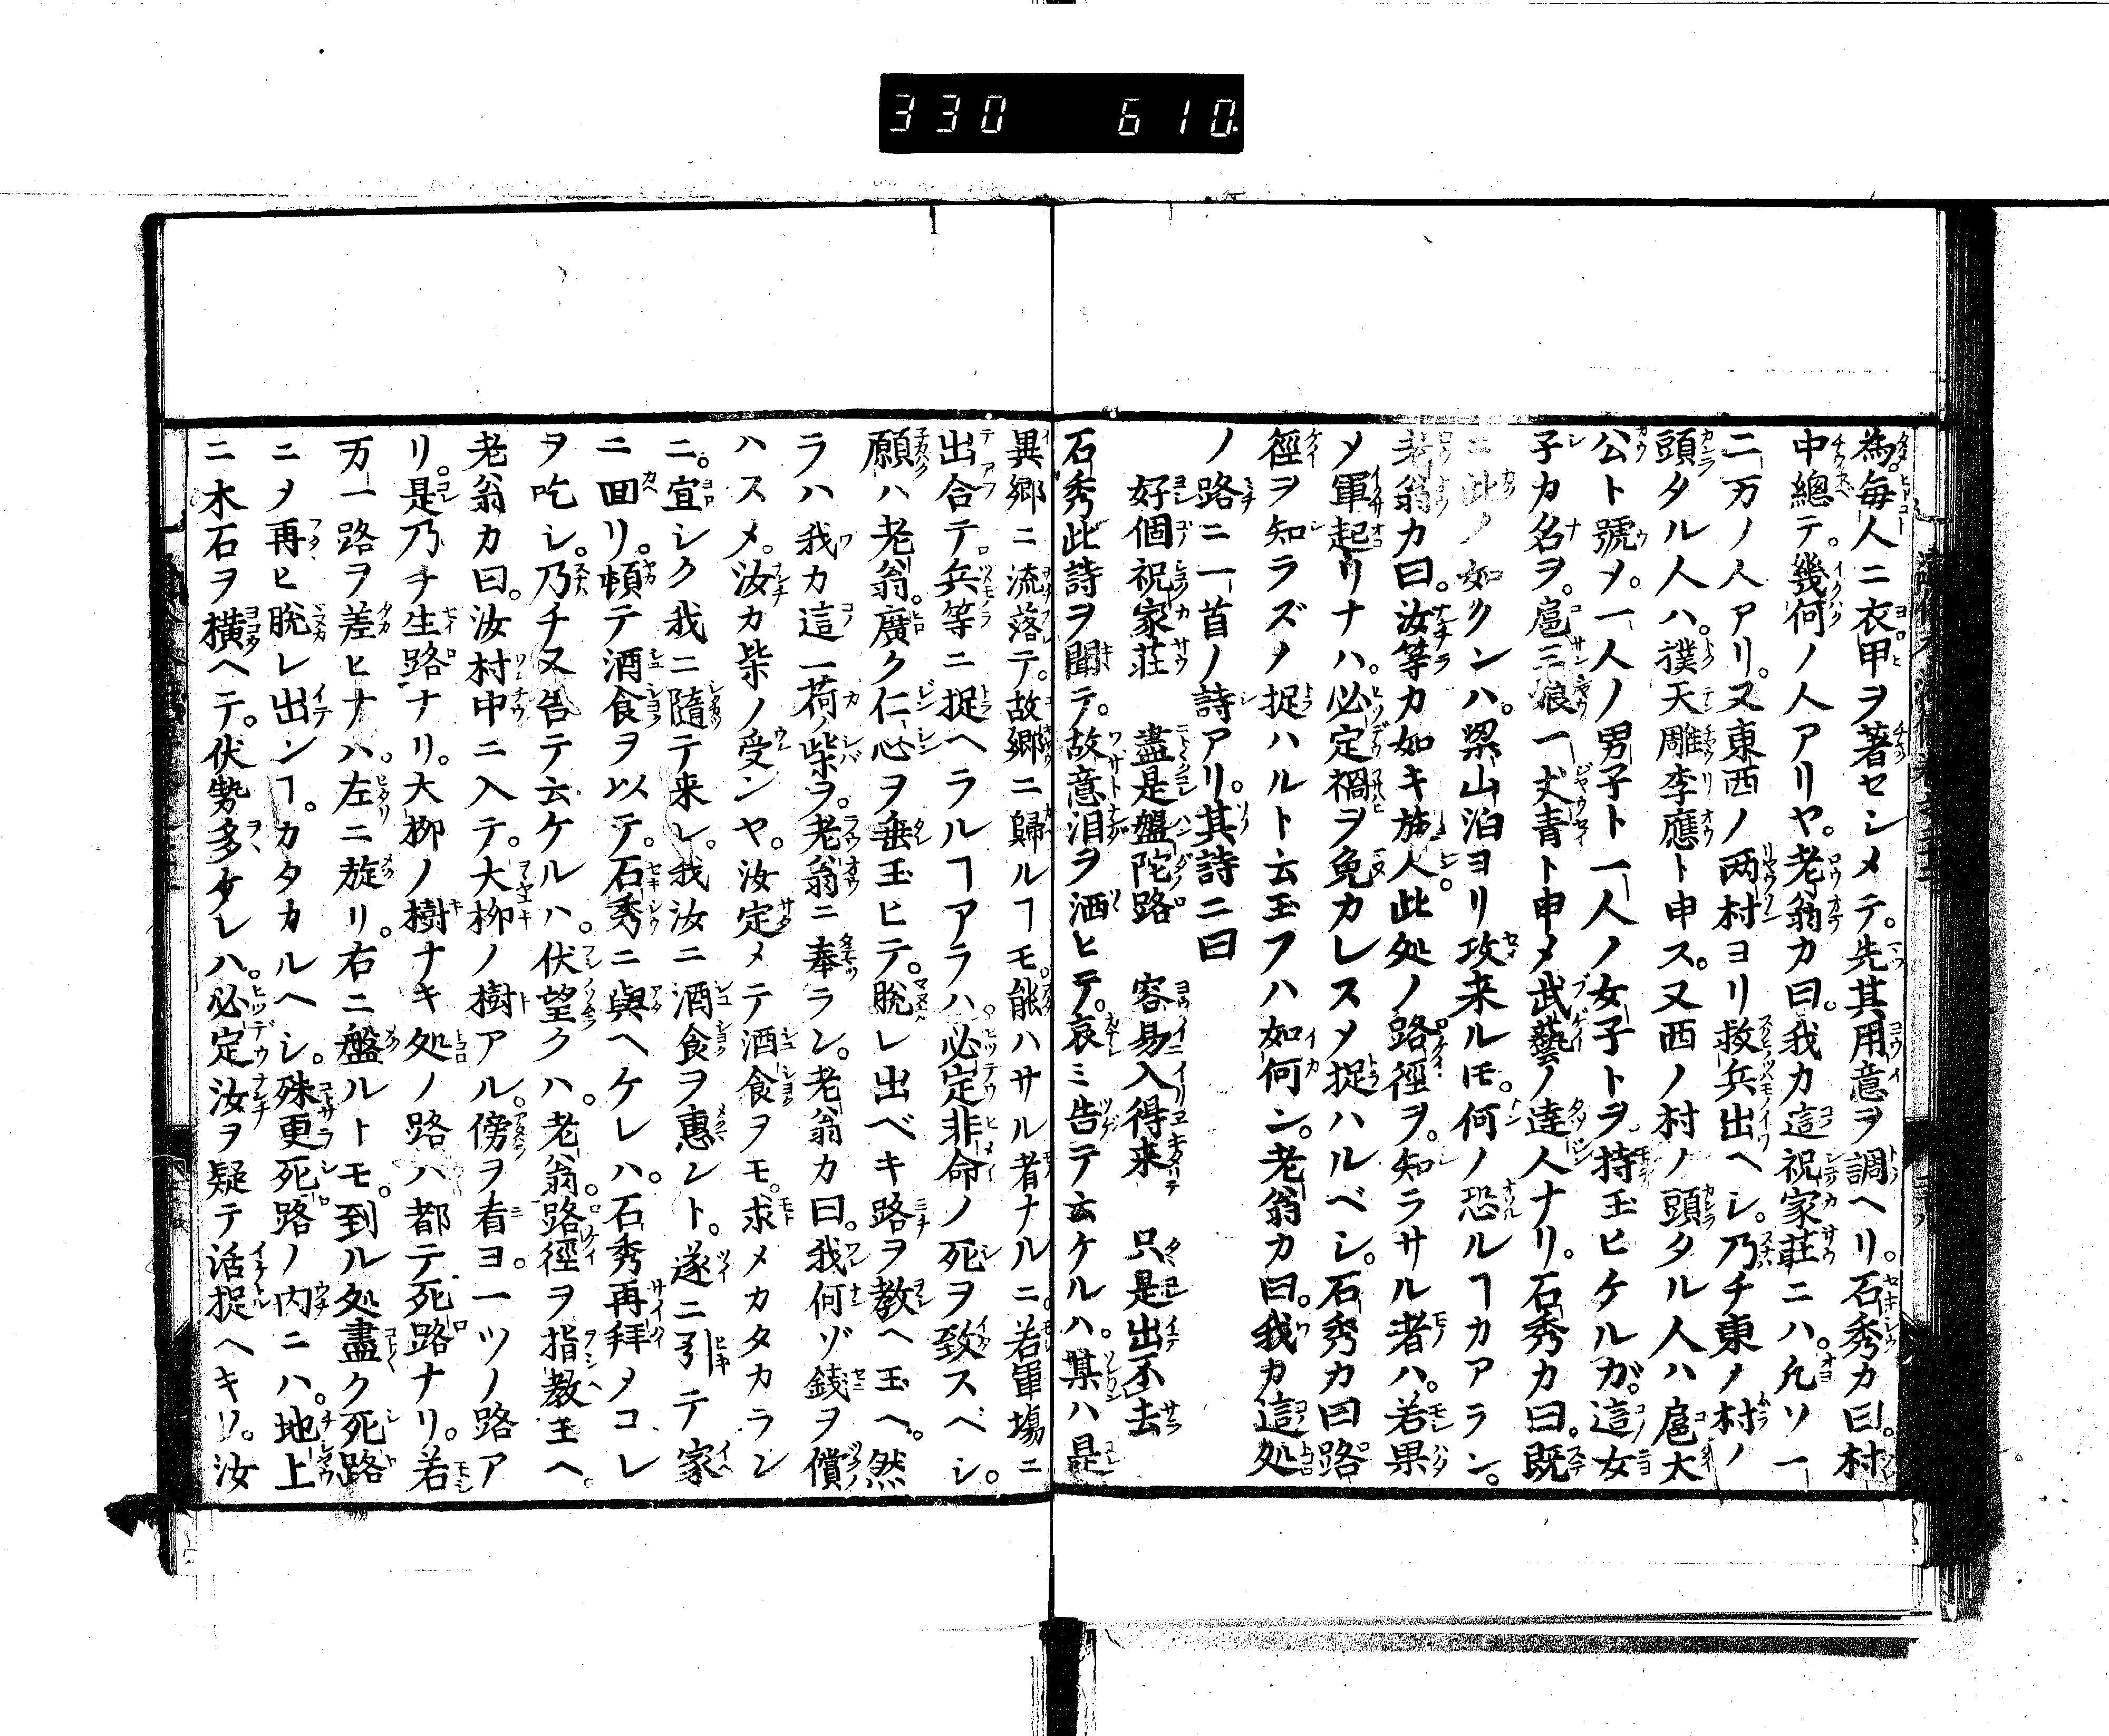 330 610.
為毎人ニ衣甲ヲ著セシメテ。先其用意ヲ調ヘリ。石秀カ曰。村
中總テ。幾何ノ人アリヤ。老翁カ曰。我カ這祝家莊ニハ。凡ソ一
二万ノ人アリ。又東西ノ两村ヨリ救兵出ヘシ。乃チ東ノ村ノ
頭タル人ハ。撲天雕李應ト申ス。又西ノ村ノ頭タル人ハ扈大
公ト號メ。一人ノ男子ト一人ノ女子トヲ持玉ヒケルガ。這女
子カ名ヲ。扈三娘一丈青ト申メ武藝ノ達人ナリ。石秀カ曰。既
ニ此ノ如クンハ。梁山泊ヨリ攻来ルモ。何ノ恐ルヿカアラン。
老翁カ曰。汝等カ如キ旅人此処ノ路徑ヲ。知ラサル者ハ。若果
メ軍起リナハ。必定禍ヲ免カレスメ捉ハルベシ。石秀カ曰路
徑ヲ知ラズメ捉ハルト云玉フハ如何ン。老翁カ曰。我カ這処
ノ路ニ一首ノ詩アリ。其詩ニ曰
好個祝家莊 盡是盤陀路 容易入得来 只是出不去
石秀此詩ヲ聞テ。故意泪ヲ洒ヒテ。哀ミ告テ云ケルハ。某ハ是
異郷ニ流落テ。故郷ニ歸ルヿモ。能ハサル者ナルニ。若軍塲ニ
出合テ。兵等ニ捉ヘラルヿアラハ。必定非命ノ死ヲ致スベシ。
願ハ老翁。廣ク仁心ヲ垂玉ヒテ。脱レ出ベキ路ヲ教ヘ玉ヘ。然
ラハ我カ這一荷ノ柴ヲ。老翁ニ奉ラン。老翁カ曰。我何ゾ銭ヲ償
ハスメ。汝カ柴ノ受ンヤ。汝定メテ酒食ヲモ。求メカタカラン
ニ。宜シク我ニ隨テ来レ。我汝ニ酒食ヲ惠ント。遂ニ引テ家
ニ回リ。頓テ酒食ヲ以テ。石秀ニ與ヘケレハ。石秀再拜メコレ
ヲ吃シ。乃チ又告テ云ケルハ。伏望クハ。老翁。路徑ヲ指教玉ヘ。
老翁カ曰。汝村中ニ入テ。大柳ノ樹アル。傍ヲ看ヨ。一ツノ路ア
リ。是乃チ生路ナリ。大柳ノ樹ナキ処ノ路ハ都テ死路ナリ。若
万一路ヲ差ヒナハ。左ニ旋リ。右ニ盤ルトモ。到ル処盡ク死路
ニメ再ヒ脱レ出ンヿ。カタカルヘシ。殊更死路ノ内ニハ。地上
ニ木石ヲ横ヘテ。伏勢多ケレハ。必定汝ヲ疑テ活捉ヘキソ。汝